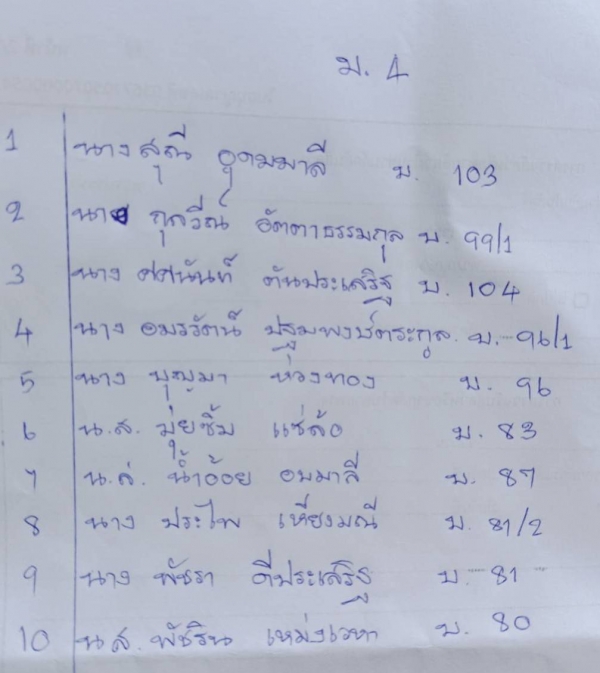 ม. 4
1 นางสุณี อุดมมาลี บ. 103
2 นาย กุลวีณ์ อัตตาธรรมกุล บ. 99/1
3 นาง ศศนันท์ ตันประเสริฐ บ. 104
4 นาง อมรรัตน์ ปฐมพงษ์ตระกูล บ. 96/1
5 นาง บุญมา ห่วงทอง บ. 96
6 น.ส. มุ่ยซิ้ม แซ่ล้อ บ. 83
7 น.ส. น้ำอ้อย อบมาลี บ. 87
8 นาง ประไพ เที่ยงมณี บ. 81/2
9 นาง พัชรา ดีประเสริฐ บ. 81
10 น.ส. พัชริน เหม่งเวหา บ. 80